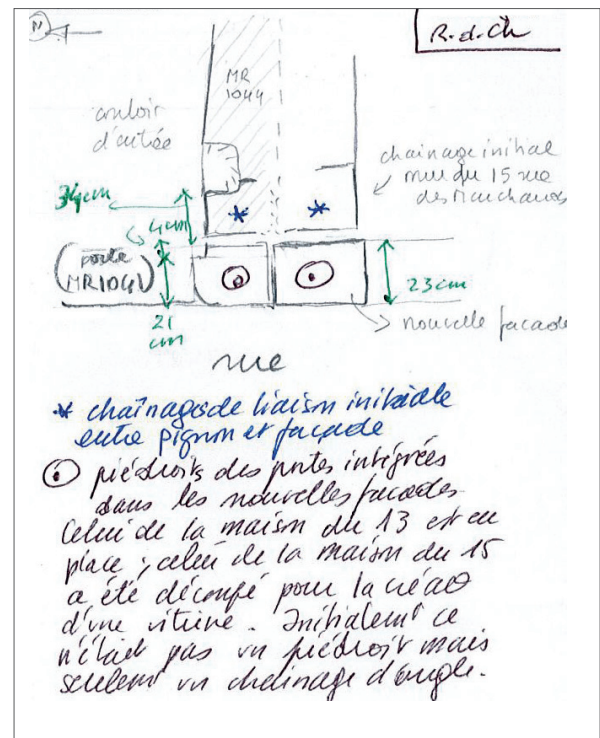 N
R.d.Ch
MR
1044
couloir
d'entrée
chainage initial
mur du 15 rue
des Marchands
34cm
4cm
(porte
MR1041)
21
cm
23cm
nouvelle facade
rue
* chaînages de liaison initiale
entre pignon et façade
⊙ piédroits des portes intégrées
dans les nouvelles facades.
Celui de la maison du 13 est en
place ; celui de la maison du 15
a été découpé pour la créao
d'une vitrine. Initialemt ce
n'était pas un piédroit mais
seulemt un chainage d'angle.